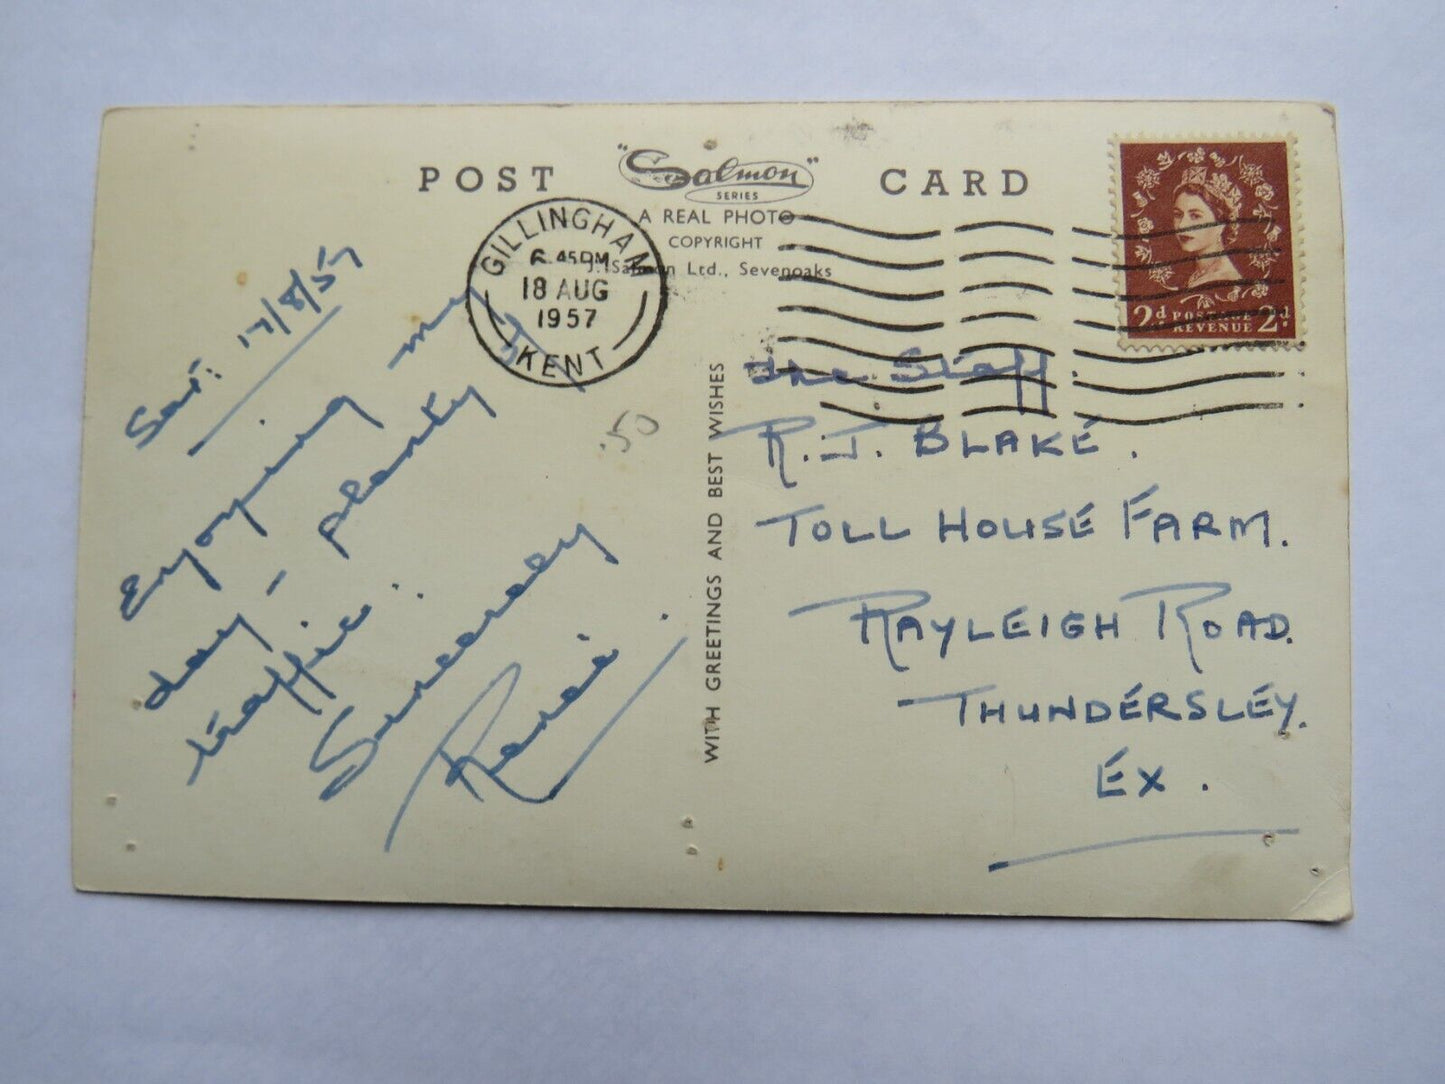 POST CARD
"Salmon"
SERIES
A REAL PHOTO
COPYRIGHT
J. Salmon Ltd., Sevenoaks
GILLINGHAM
6.45PM
18 AUG
1957
KENT
2d POSTAGE 2d
REVENUE
Sat: 17/8/57
Enjoying my
day - plenty of
traffic.
Sincerely
WITH GREETINGS AND BEST WISHES
.50
The Staff.
R. J. BLAKE.
TOLL HOUSE FARM.
RAYLEIGH ROAD.
THUNDERSLEY.
EX.